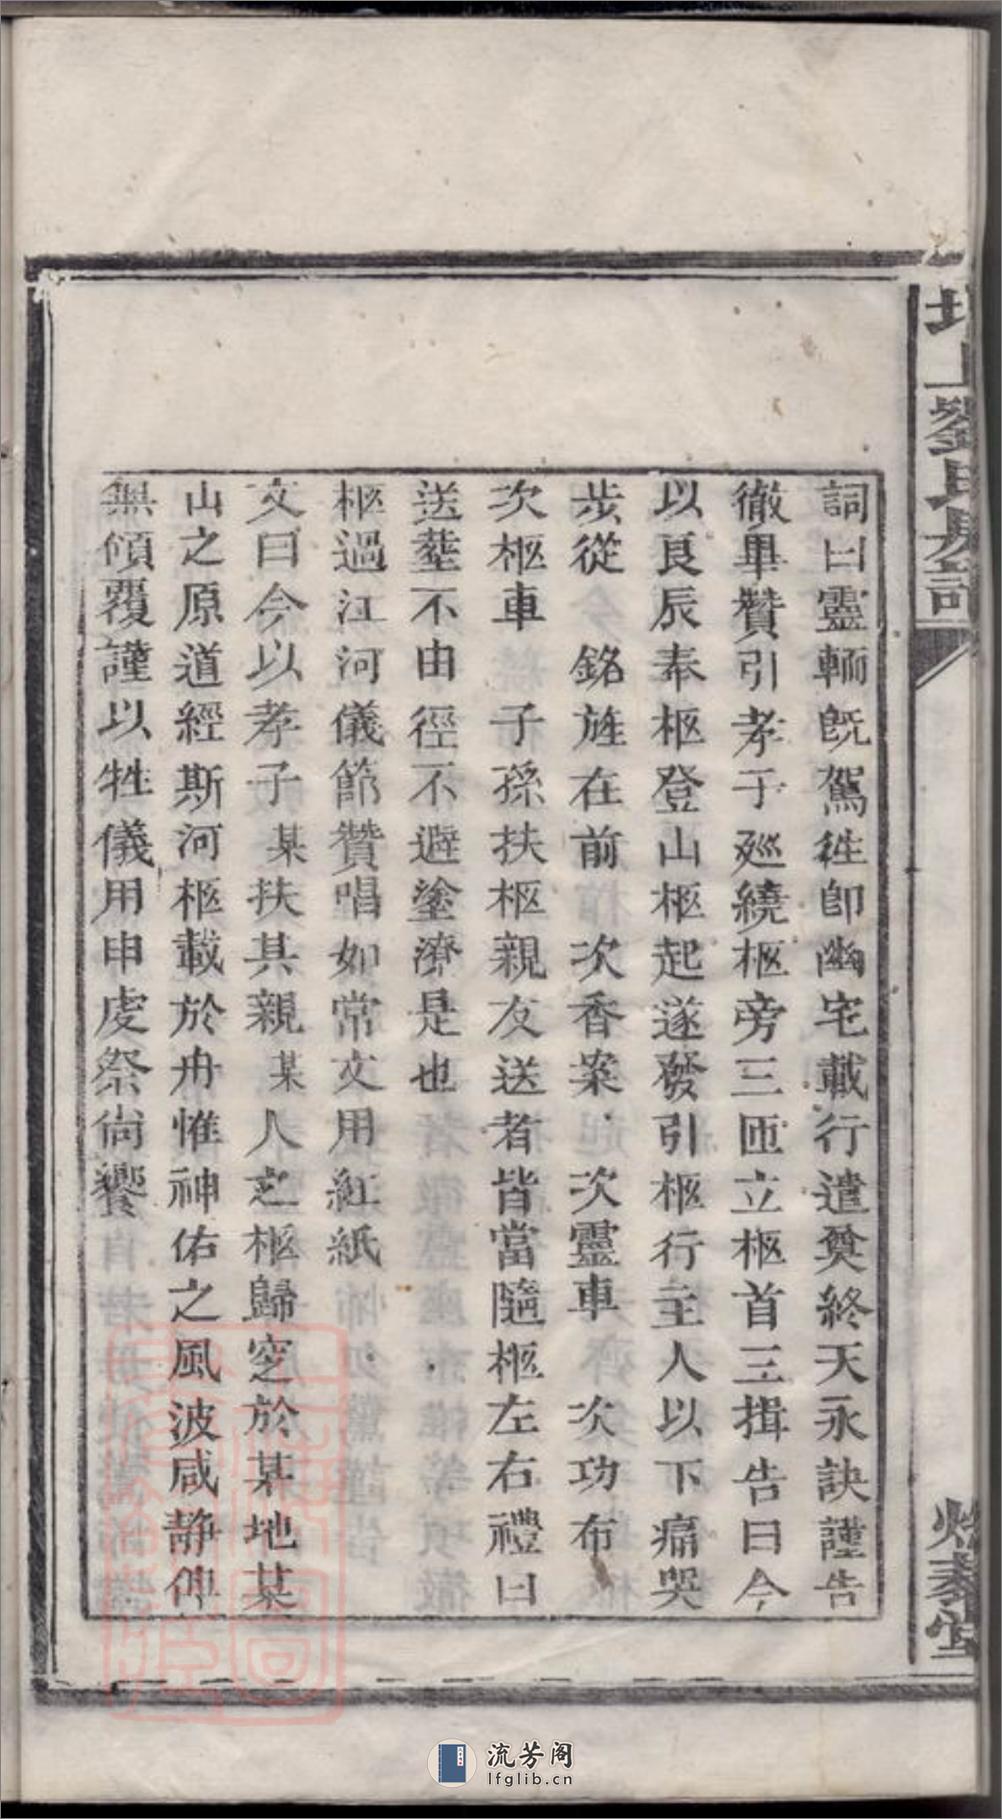 詞曰靈輀旣駕徃卽幽宅載行遣奠終天永訣謹告
徹畢贊引孝子廵繞柩旁三匝立柩首三揖告曰今
以良辰奉柩登山柩起遂發引柩行主人以下痛哭
步從　銘旌在前　次香案　次靈車　次功布
次柩車　子孫扶柩親友送者皆當隨柩左右禮曰
送塟不由徑不避塗潦是也
柩過江河儀節贊唱如常文用紅紙
文曰今以孝子某扶其親某人之柩歸窆於某地某
山之原道經斯河柩載於舟惟神佑之風波咸静俾
無傾覆謹以牲儀用申虔祭尚饗
劉氏
堂
流芳阁
lfglib.cn